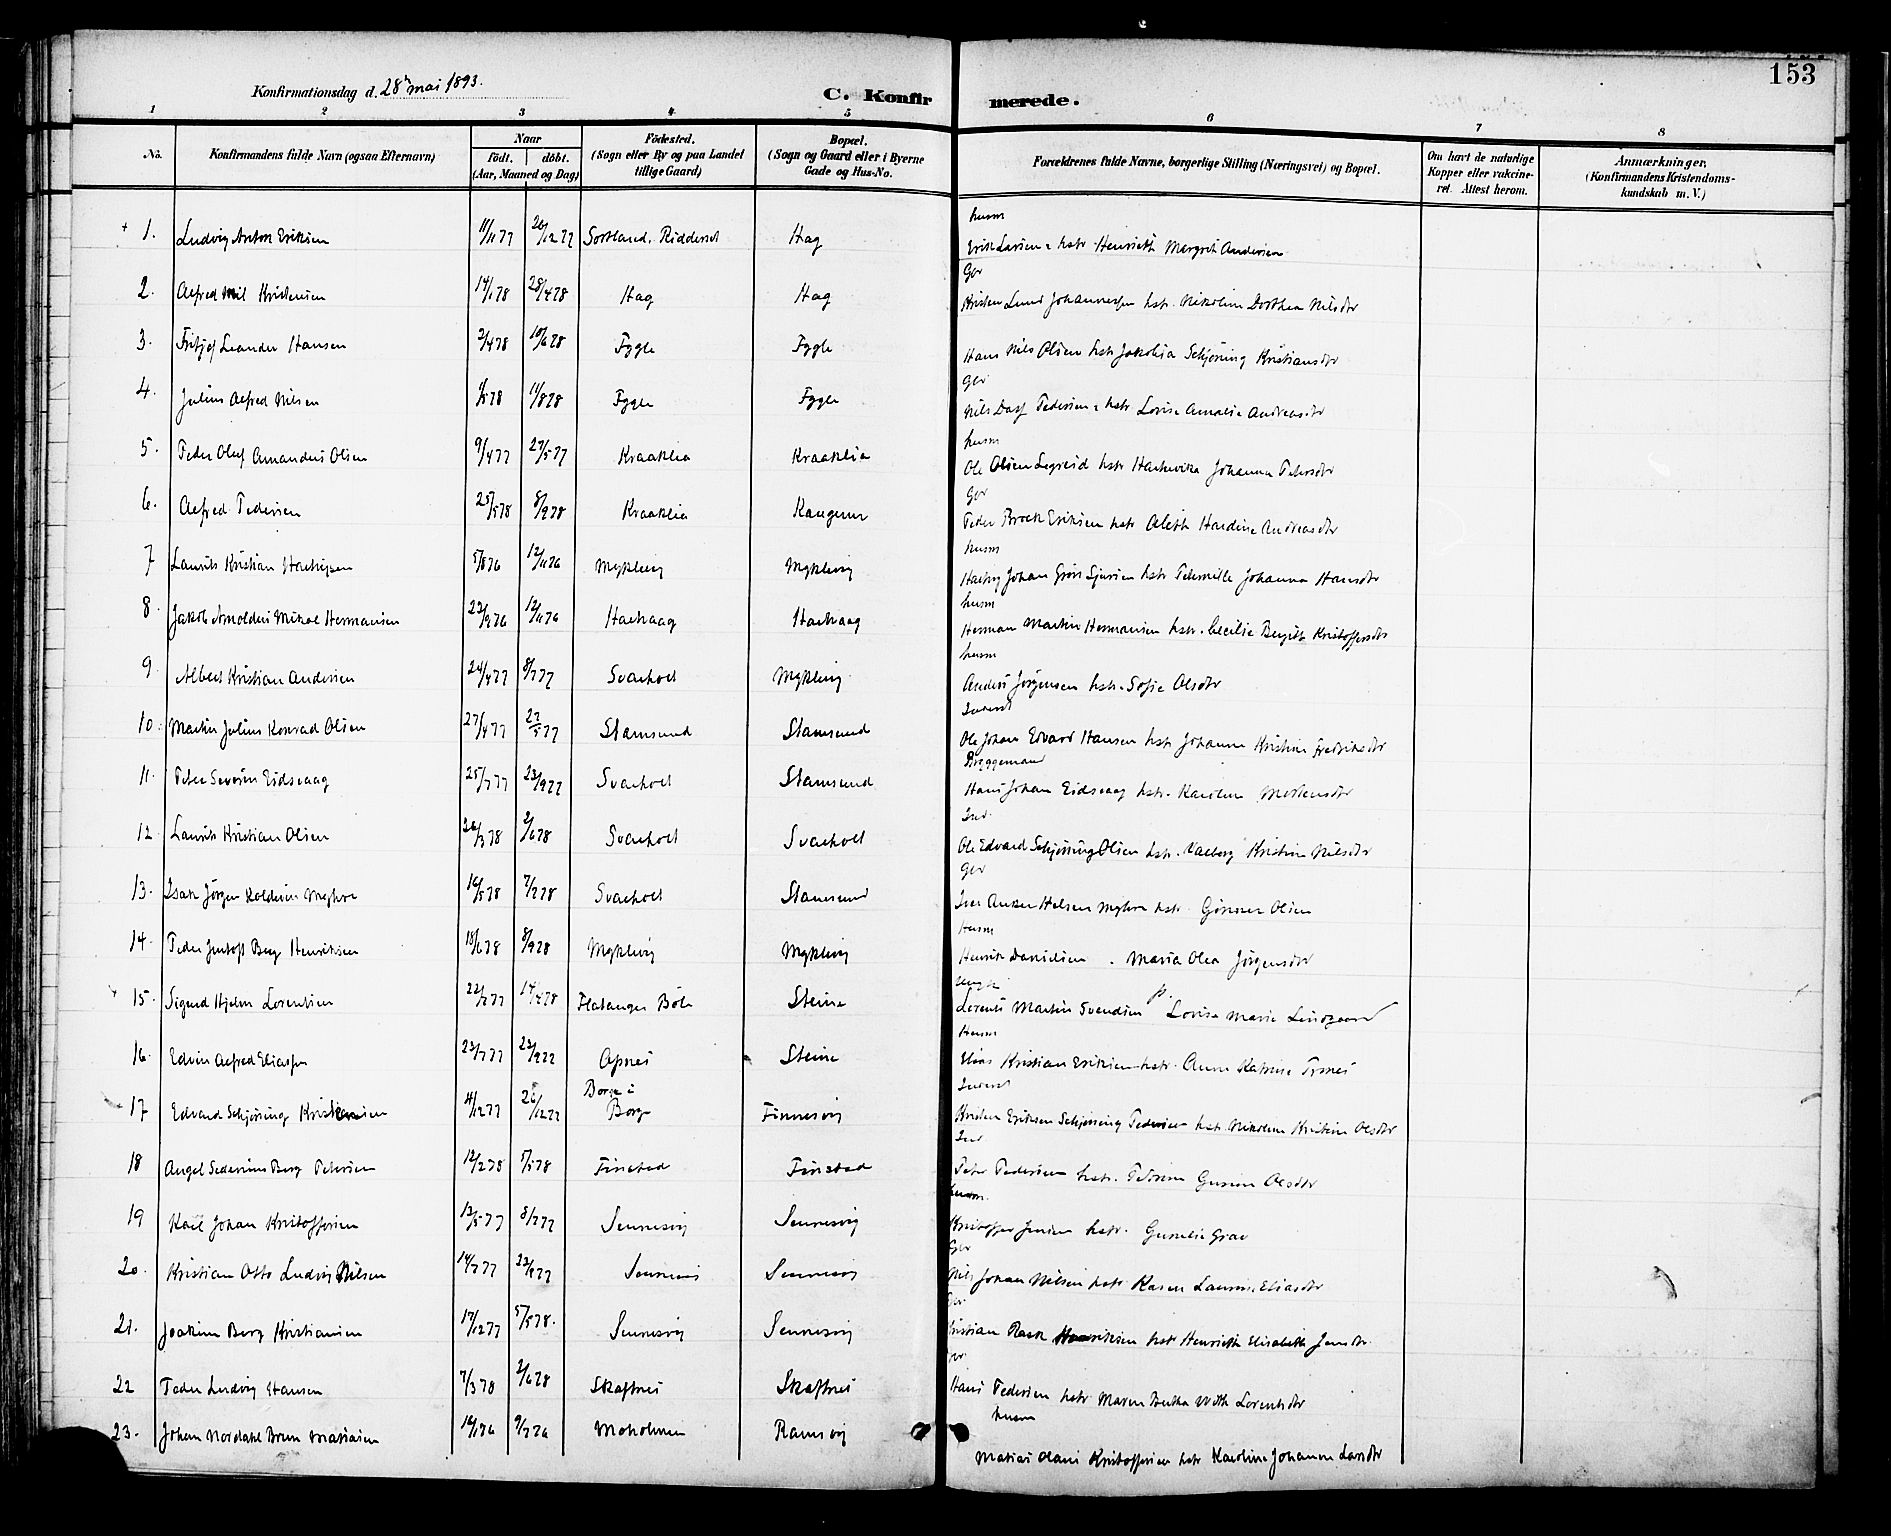 153
Konfirmationsdag d. 28de mai 1893.
C. Konfirmerede.
1 2 3 4 5 6 7 8
No. Konfirmandens fulde Navn (ogsaa Efternavn) Naar födt. döbt. (Aar, Maaned og Dag) Födested. (Sogn eller By og paa Landet tillige Gaard) Bopæl. (Sogn og Gaard eller i Byerne Gade og Hus-No. Forældrenes fulde Navne, borgerlige Stilling (Næringsvei) og Bopæl. Om havt de naturlige Kopper eller vakcineret. Attest herom. Anmærkninger, (Konfirmandens Kristendomskundskab m. V.)
husm
1. Ludvig Anton Eriksen 11/11 77 26/12 77 Sortland, Hag Erik Larsen & hstr Henrieth Margret Andersen
Gbr
2. Alfred Kristensen 14/1 78 28/4 78 Hag Hag Kristen Lund Johannessen hstr. Nikoline Dorthea Nilsdtr
3. Fritjof Leander Hansen 2/4 78 10/6 78 Fygle Fygle Hans Nils Olsen hstr Jakobia Schjöning Kristiansdtr
Gbr
4. Julius Alfred Nilsen 11/8 78 Fygle Fygle Nils Dass Pedersen & hstr Lovise Amalie Andreasdtr
husm
5. Peder Oluf Amandus Olsen 9/4 77 27/5 77 Kraaklia Kraaklia Ole Olsen hstr Johanna Petersdtr
Gbr
6. Alfred Pedersen 25/5 78 8/9 78 Kraaklia Peder Brock Eriksen hstr Aleth Hardine Andreasdtr
husm
7 Laurits Kristian Hartvigsen 5/8 76 12/11 76 Myklevig Myklevig Hartvig Johan hstr Peternille Johanna Hansdtr
husm
8. Jakob Arnoldus Mikal Hermansen 23/9 76 12/11 76 Herman Martin Hermansen hstr. Cecilie Bergitte Kristoffersdtr
husm
9 Albert Kristian Andersen 24/4 77 8/7 77 Svarholt Myklevig Anders Jörgensen hstr. Sofie Olsdtr
Inderst
10. Martin Julius Konrad Olsen 27/4 77 27/5 77 Stamsund Stamsund Ole Johan Edvard Hansen hstr Johanne Kristine Fredriksdtr
Bryggemand
11. Peter Severin Eidsvaag 25/7 77 23/9 77 Svarholt Stamsund Hans Johan Eidsvaag hstr. Karoline Mortensdtr
Ind.
12 Laurits Kristian Olsen 26/3 78 2/6 78 Svarholt Svarholt Ole Edvard Schjöning Olsen hstr. Valborg Kristine Nilsdtr
Gbr
13. Isak Jörgen 16/5 78 7/7 78 Svarholt Stamsund hstr. Gunner Olsen
Husm
14. Peder Jentoft Berg Henriksen 18/6 78 8/9 78 Myklevig Myklevig Henrik Danielsen . Maria Olea Jörgensdtr
15. Sigurd Hjelm Lorentsen 14/4 78 Flatanger Steine Lorents Martin Svendsen p. Lovise Marie
Husm
16. Edvin Alfred Eliassen 23/7 77 23/9 77 Steine Elias Kristian Eriksen hstr. Anne Katrine
Inderst
17 Edvard Schjöning Kristensen 4/12 77 26/12 77 Borge i Borge Finnesvig Kristen Eriksen Schjöning Pedersen hstr. Nikoline Kristine Olsdtr
Ind
18 Angel Sederins Berg Petersen 12/2 78 5/5 78 Finstad Finstad Peter Pedersen hstr. Petrine Olsdtr
husm.
19 Karl Johan Kristoffersen 13/5 77 8/7 77 Sennesvig Sennesvig Kristoffer Jensen hstr.
Gbr
20. Kristian Otto Ludvig Nilsen 14/7 77 23/9 77 Sennesvig Sennesvig Nils Johan Nilsen hstr Karen Laurine Eliasdtr
Gbr
21. Joakim Berg Kristiansen 17/12 77 5/5 78. Sennesvig Sennesvig Kristian Rask Henriksen hstr Henrieth Elisabeth Jensdtr.
Gbr
22 Peder Ludvig Hansen 7/3 78 2/6 78 Skaftnes Skaftnes Hans Pedersen hstr Maren Bertha With Lorentsdtr
husm
23. Johan Nordahl Brun Matiasen 16/1 76 9/7 76 Moholmen Ramsvig Matias Olaus Kristoffersen hstr Karoline Johanna Larsdtr